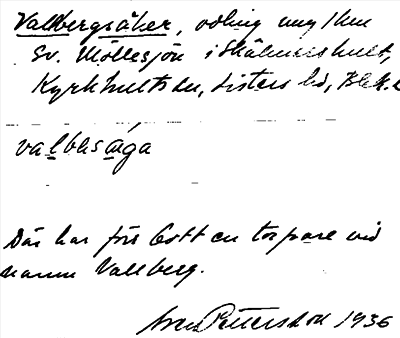 Vallbergsåker, odling ung 1 km
SV. Möllesjön i Skälmershult,
Kyrkhults sn, Listers hd, Blek.l.
valbasåga
Där har förr bott en torpare vid
namn Vallberg.
Sven Pettersson 1936